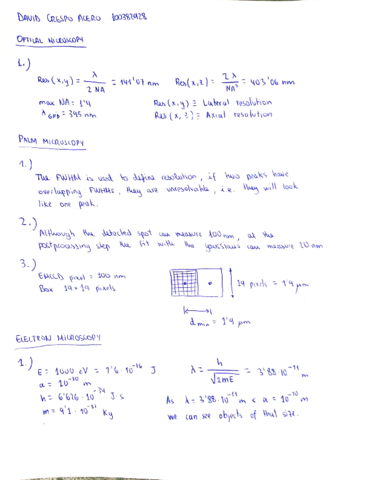 DAVID CRESPO ACERO 100382928
OPTICAL MICROSCOPY
1.)
Res (x,y) = λ / 2 NA = 141'07 nm Res (x,z) = 2 λ / NA² = 403'06 nm
max NA = 1'4 Res (x,y) ≡ Lateral resolution
λ GFP = 395 nm Res (x,z) ≡ Axial resolution
PALM MICROSCOPY
1.)
The FWHM is used to define resolution, if two peaks have
overlapping FWHMs, they are unresolvable, i.e. they will look
like one peak.
2.)
Although the detected spot can measure 100 nm, at the
postprocessing step the fit with the gaussians can measure 20 nm.
3.)
EMCCD pixel = 100 nm
Box 14 × 14 pixels
14 pixels = 1'4 µm
d min = 1'4 µm
ELECTRON MICROSCOPY
1.)
E = 1000 eV = 1'6·10⁻¹⁶ J λ = h / √2mE = 3'88·10⁻¹¹ m
a = 10⁻¹⁰ m
h = 6'626·10⁻³⁴ J·s As λ = 3'88·10⁻¹¹ m < a = 10⁻¹⁰ m
m = 9'1·10⁻³¹ Kg we can see objects of that size.